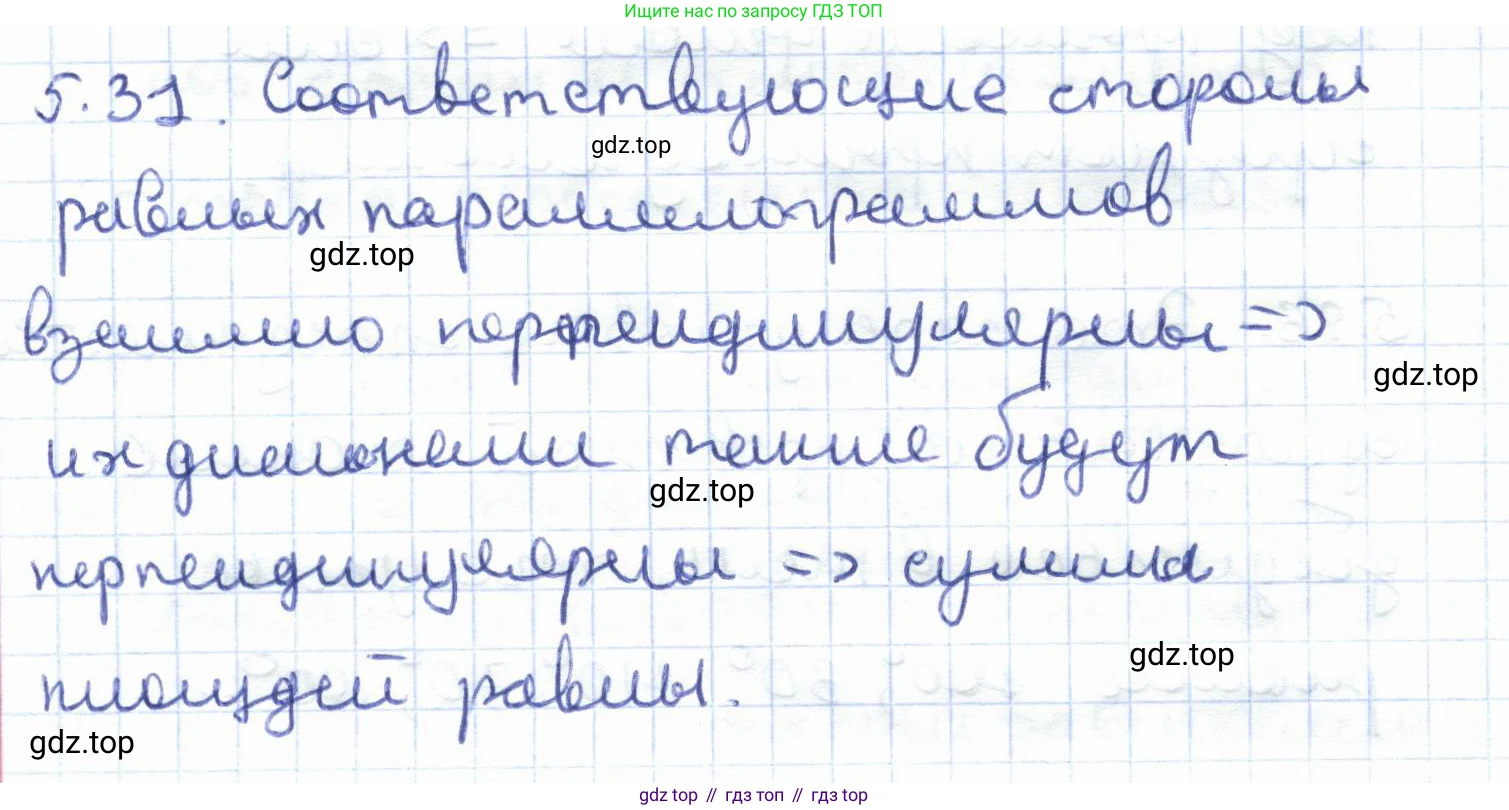 Ищите нас по запросу ГДЗ ТОП
5.31. Соответствующие стороны
gdz.top
равных параллелограммов
gdz.top
взаимно перпендикулярны =>
gdz.top
их диагонали также будут
gdz.top
перпендикулярны => сумма
gdz.top
площадей равны.
gdz.top
gdz top // гдз топ // гдз top